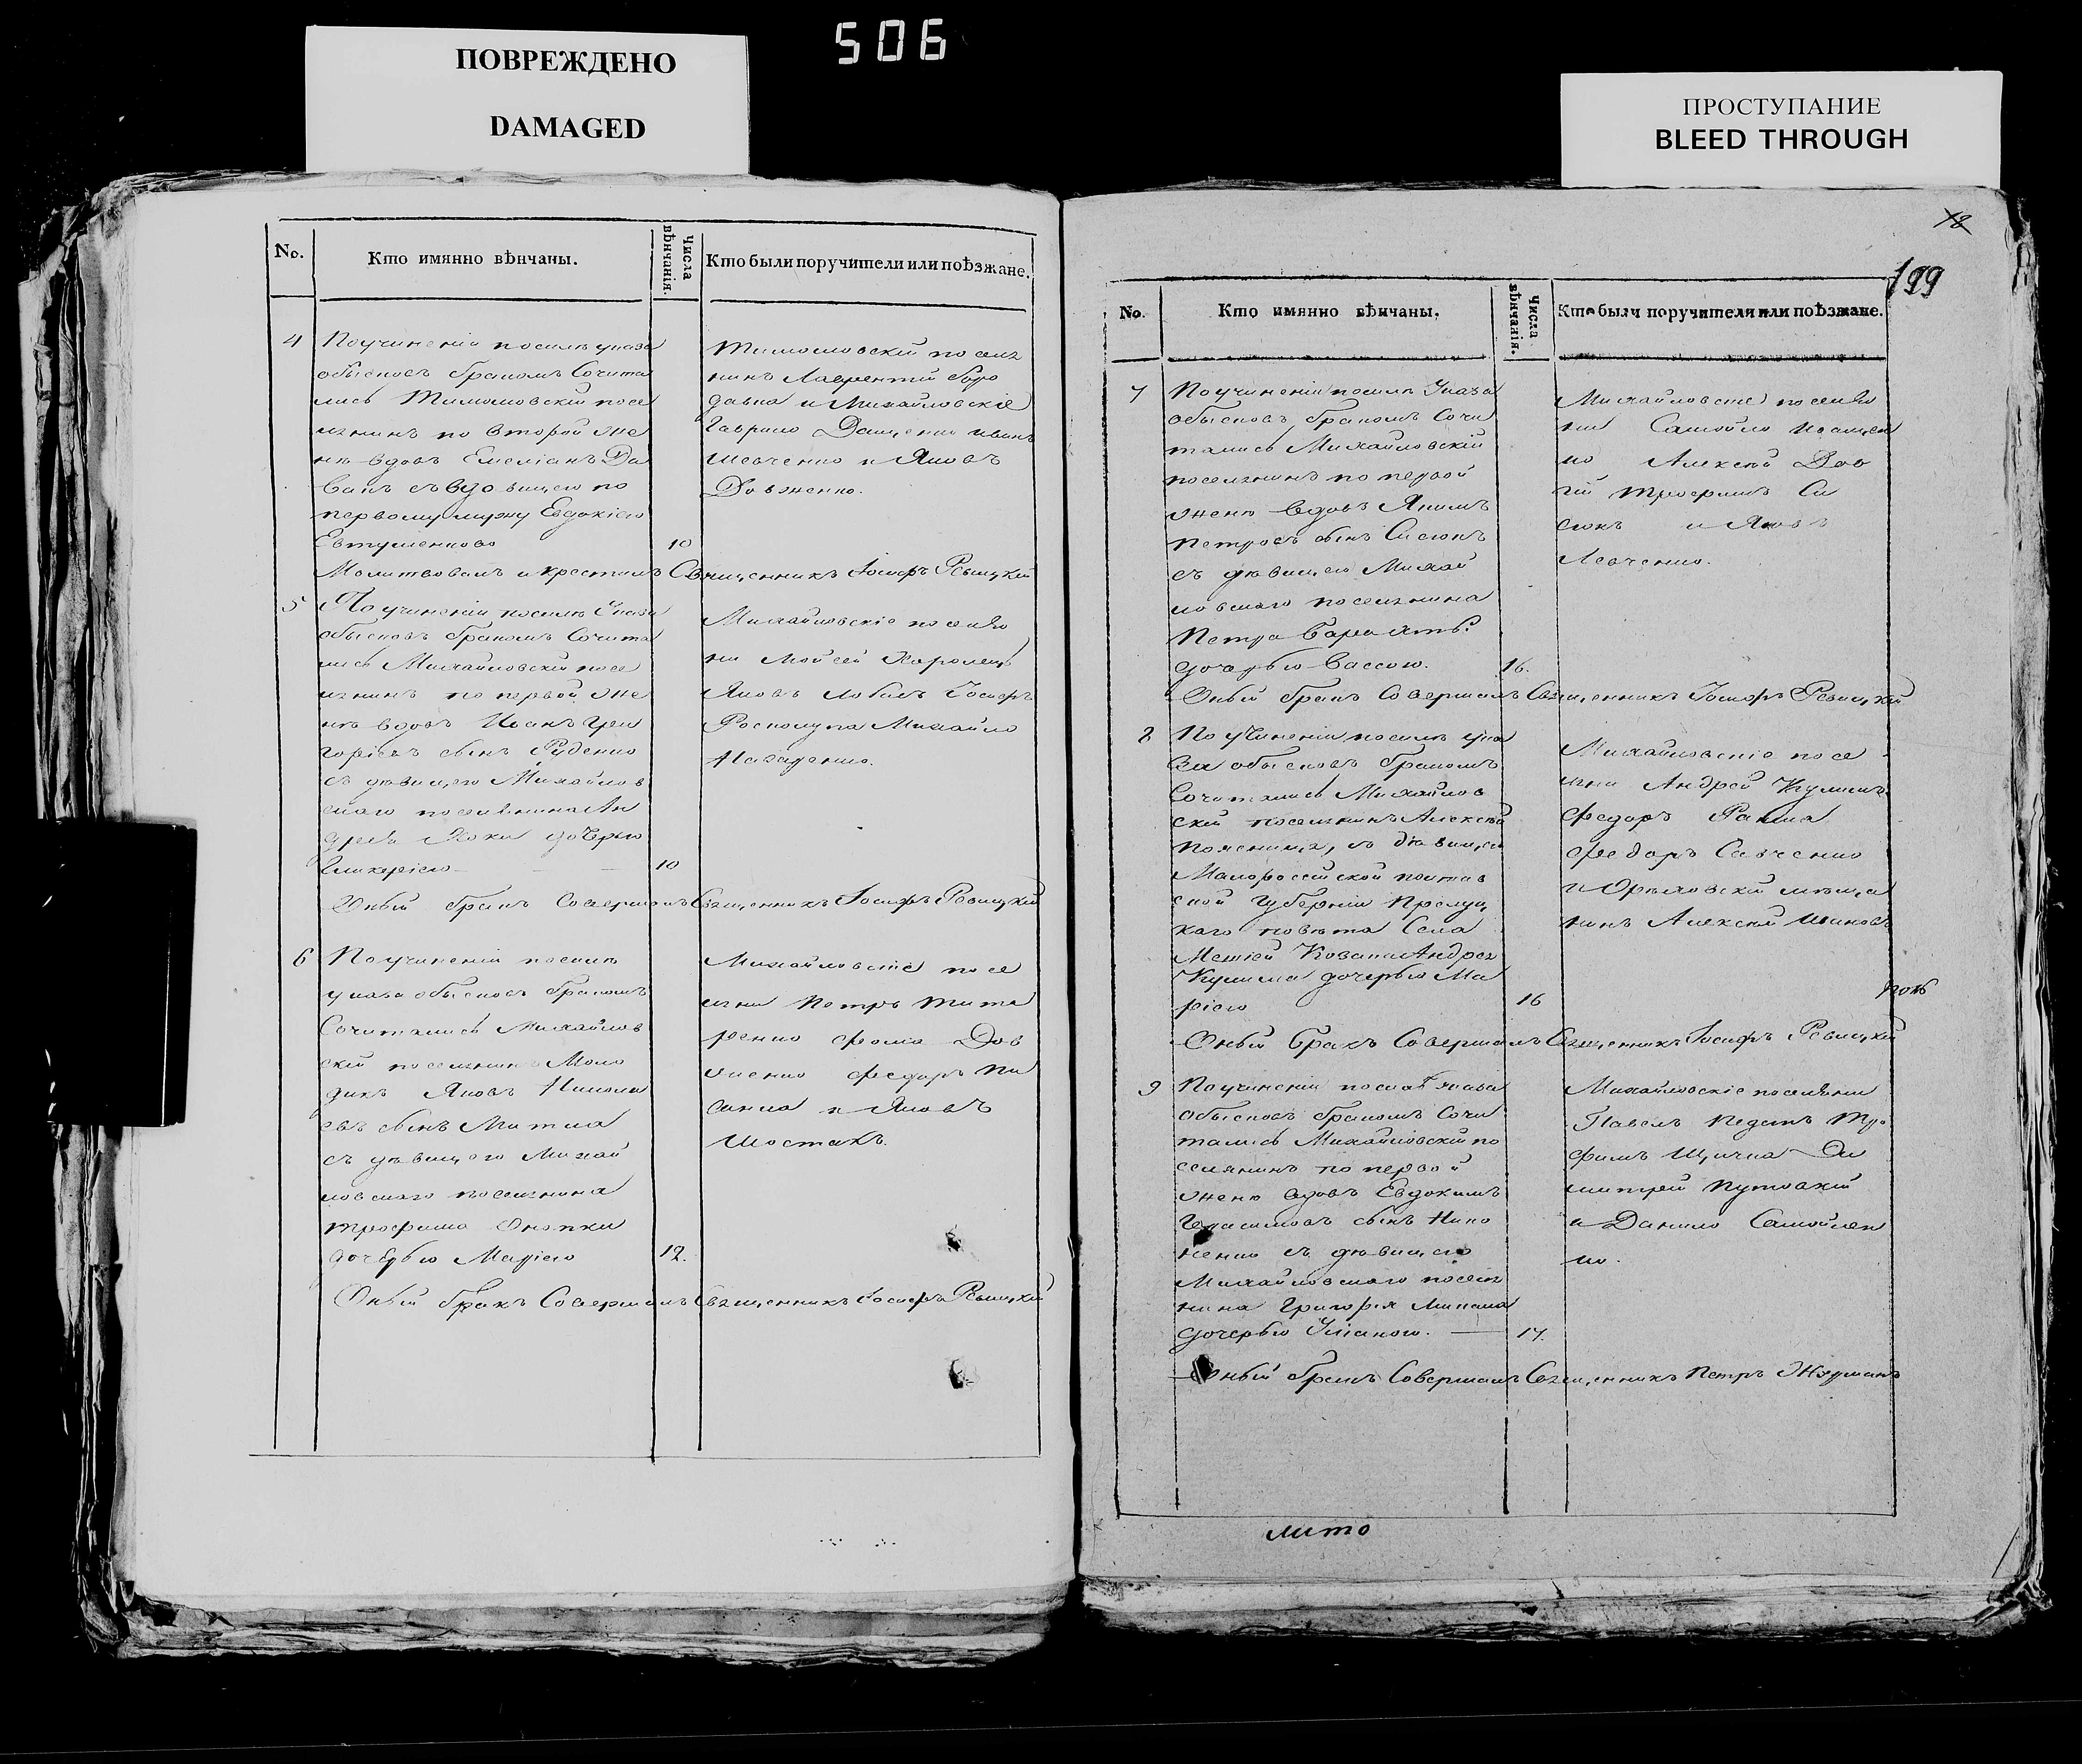 506
ПОВРЕЖДЕНО
DAMAGED
ПРОСТУПАНИЕ
BLEED THROUGH
No.
Кто имянно вѣнчаны.
Числа вѣнчанія.
Кто были поручители или поѣзжане.
4
По учиненіи посилѣ указа
обысковъ бракомъ Сочита
лись Тимошовскій посе
лянинъ по второй же
нѣ вдовъ Емеліанъ
съ вдовицею по
первому мужу Евдокіею
10
Тимошовскій поселя
нинъ Лаврентій Боро
давка и Михайловскіе
Гаврило Даценко иванъ
Шевченко и Яковъ
Довженко.
Молитвовалъ и крестилъ Священникъ Іосифъ Ревицкій
5
По учиненіи посилѣ Указа
обысковъ бракомъ Сочита
лись Михайловскій посе
лянинъ по первой же
нѣ вдовъ Иванъ Гри
горіевъ сынъ Руденко
съ дѣвицею Михайлов
скаго поселянина Ан
дрея дочерью
Гликеріею
10
Михайловскіе поселя
не Мойсей
Яковъ Іосифъ
Михайло
Оный бракъ Совершалъ Священникъ Іосифъ Ревицкій
6
По учиненіи посилѣ
указа обысковъ бракомъ
Сочитались Михайлов
скій поселянинъ Моло
дикъ Яковъ Никола
евъ сынъ Митла
съ дѣвицею Михай
ловскаго поселянина
Трофима
дочерью Маріею
12.
Михайловскіе посе
ляне Петръ Тита
ренко Фома Дов
женко Федоръ Пи
санка и Яковъ
Шостакъ.
Оный бракъ Совершалъ Священникъ Іосифъ Ревицкій
18
199
No.
Кто имянно вѣнчаны.
Числа вѣнчанія.
Кто были поручители или поѣзжане.
7
По учиненіи посилѣ Указа
обысковъ бракомъ Сочи
тались Михайловскій
поселянинъ по первой
женѣ вдовъ Якимъ
Петровъ сынъ Сисюкъ
съ дѣвицею Михай
ловскаго поселянина
Петра
дочерью Вассою.
16.
Михайловскіе поселя
не Самойло
Алексѣй Дов
гій Трофимъ Си
сюкъ и Яковъ
Левченко.
Оный бракъ Совершалъ Священникъ Іосифъ Ревицкій
8
По учиненіи посилѣ ука
за обысковъ бракомъ
Сочитались Михайлов
скій поселянинъ Алексѣй
съ дѣвицею
Малороссійской Полтав
ской Губерніи Прилуц
каго повѣта Села
Козака Андрея
Кулика дочерью Ма
ріею
16
Михайловскіе посе
ляне Андрей Куликъ
Федоръ
Федоръ Савченко
и Орѣховскій мѣща
нинъ Алексѣй
Оный Бракъ Совершалъ Священникъ Іосифъ Ревицкій
9
По учиненіи посилѣ указа
обысковъ бракомъ Сочи
тались Михайловскій по
селянинъ по первой
женѣ вдовъ Евдокимъ
Герасимовъ сынъ Нико
ненко съ дѣвицею
Михайловскаго поселя
нина Григорія
дочерью Уліаною.
17.
Михайловскіе поселяне
Павелъ Тро
фимъ Щичка Ди
митрей
и Данило Самойлен
ко.
Оный бракъ Совершалъ Священникъ Петръ
лито